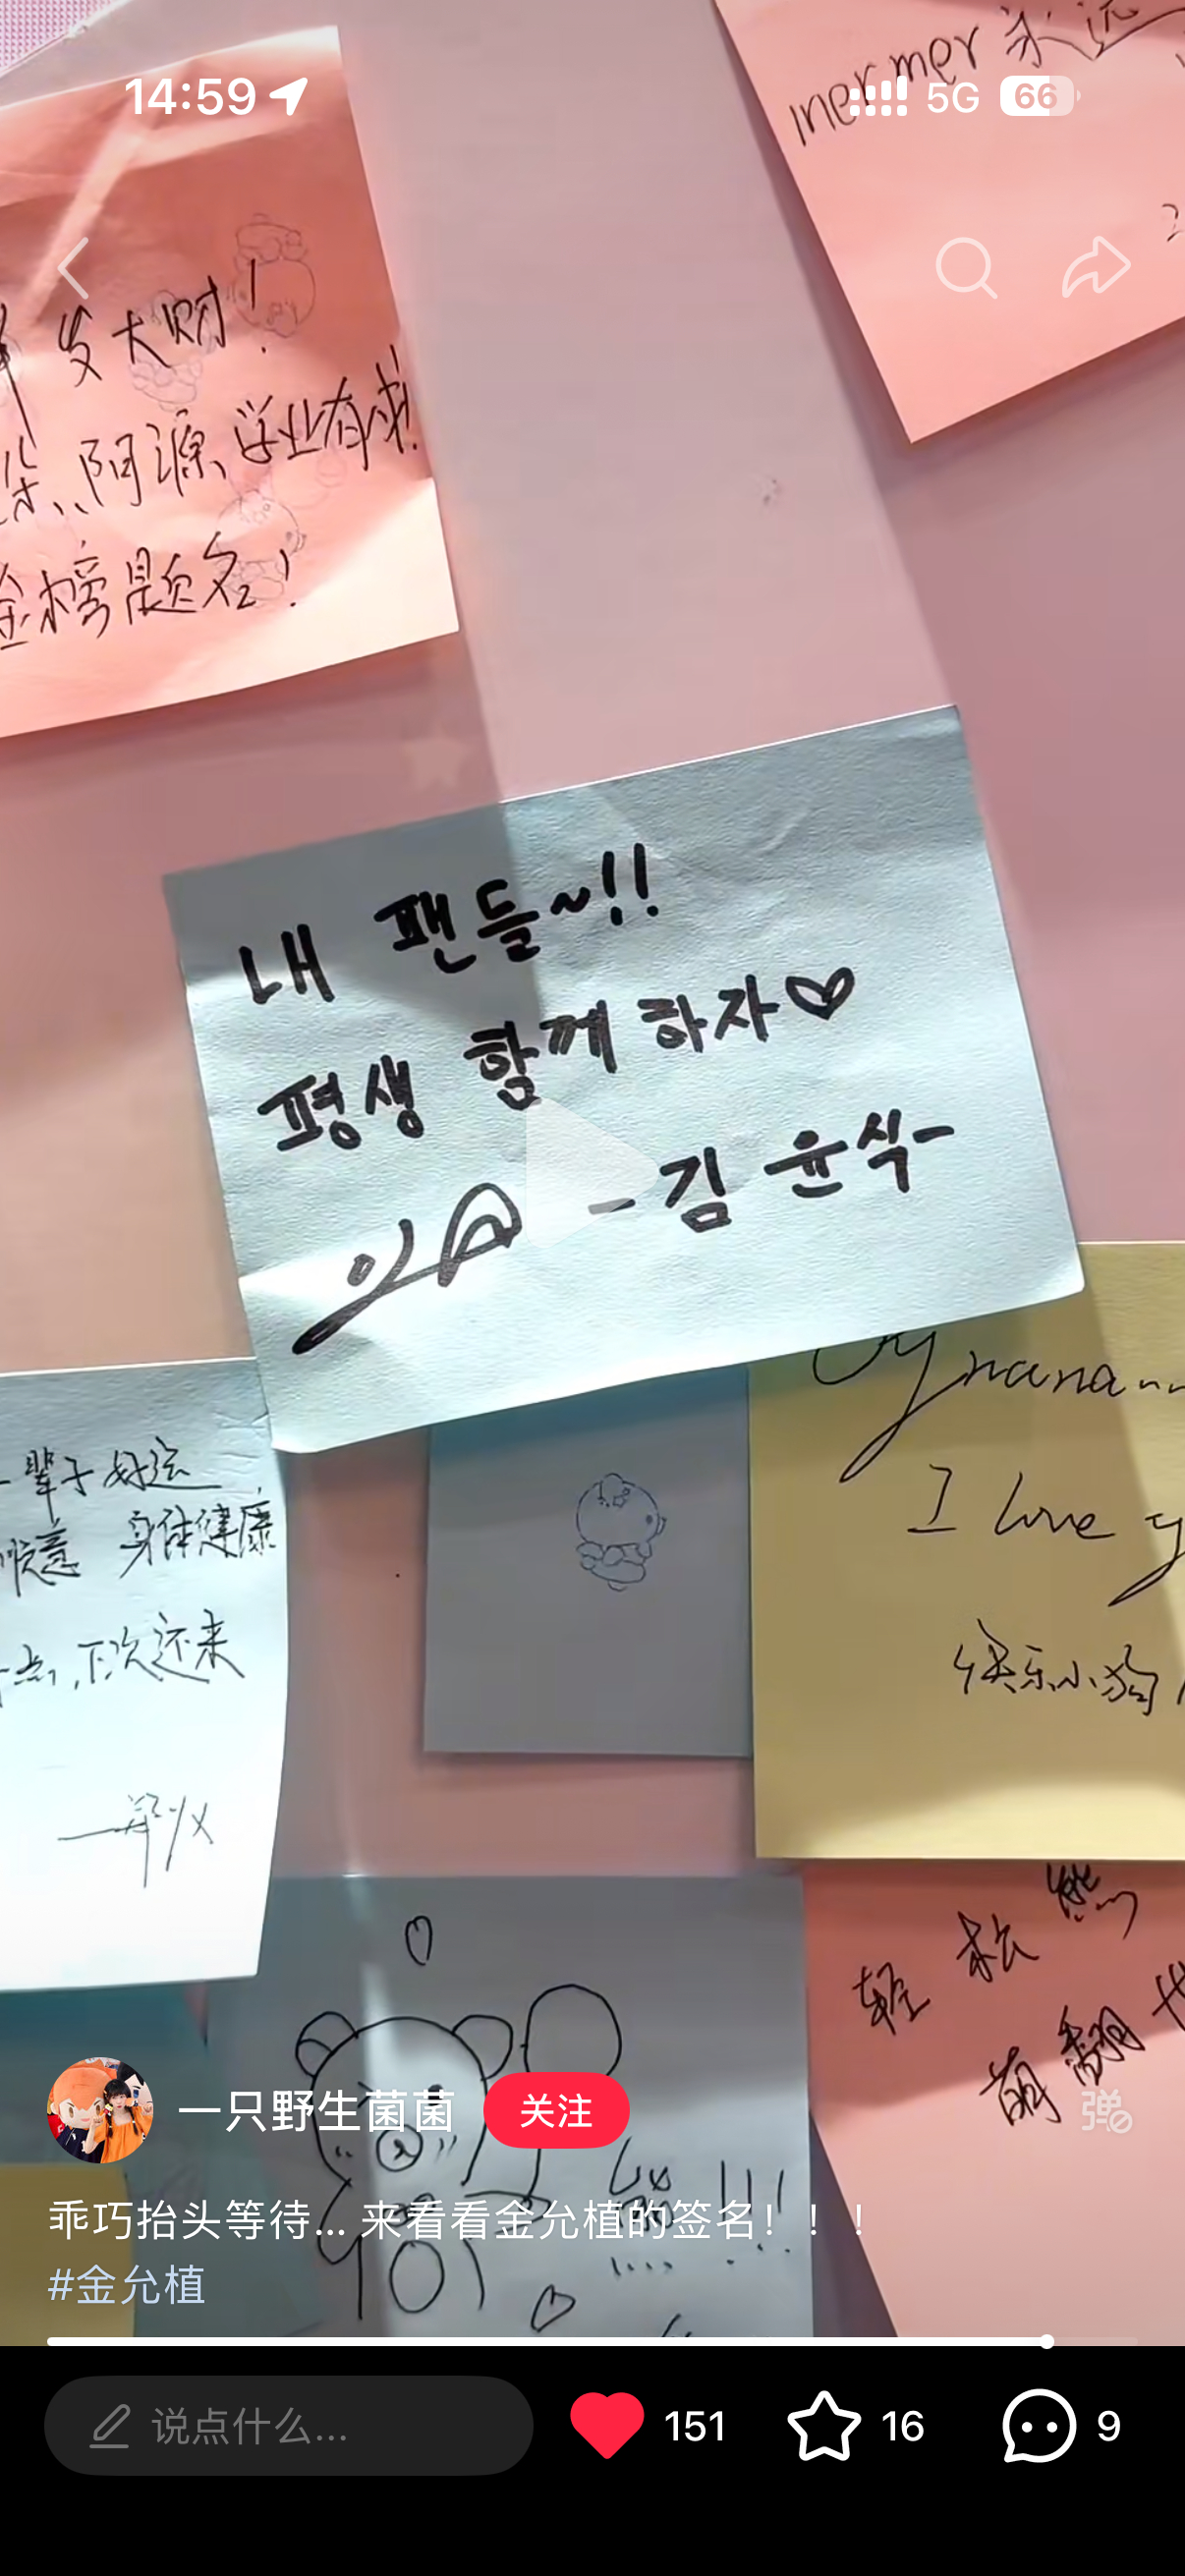 14:59
5G 66
mermer永远
发大财!
朵、阿源、学业有成!
金榜题名!
내 팬들~!!
평생 함께 하자♡
-김 윤식-
nana~~
I love y
快乐小狗
一辈子好运
顺意 身体健康
点,下次还来
轻松熊
萌翻
一只野生菌菌
关注
弹
乖巧抬头等待... 来看看金允植的签名!!!
#金允植
说点什么...
151
16
9